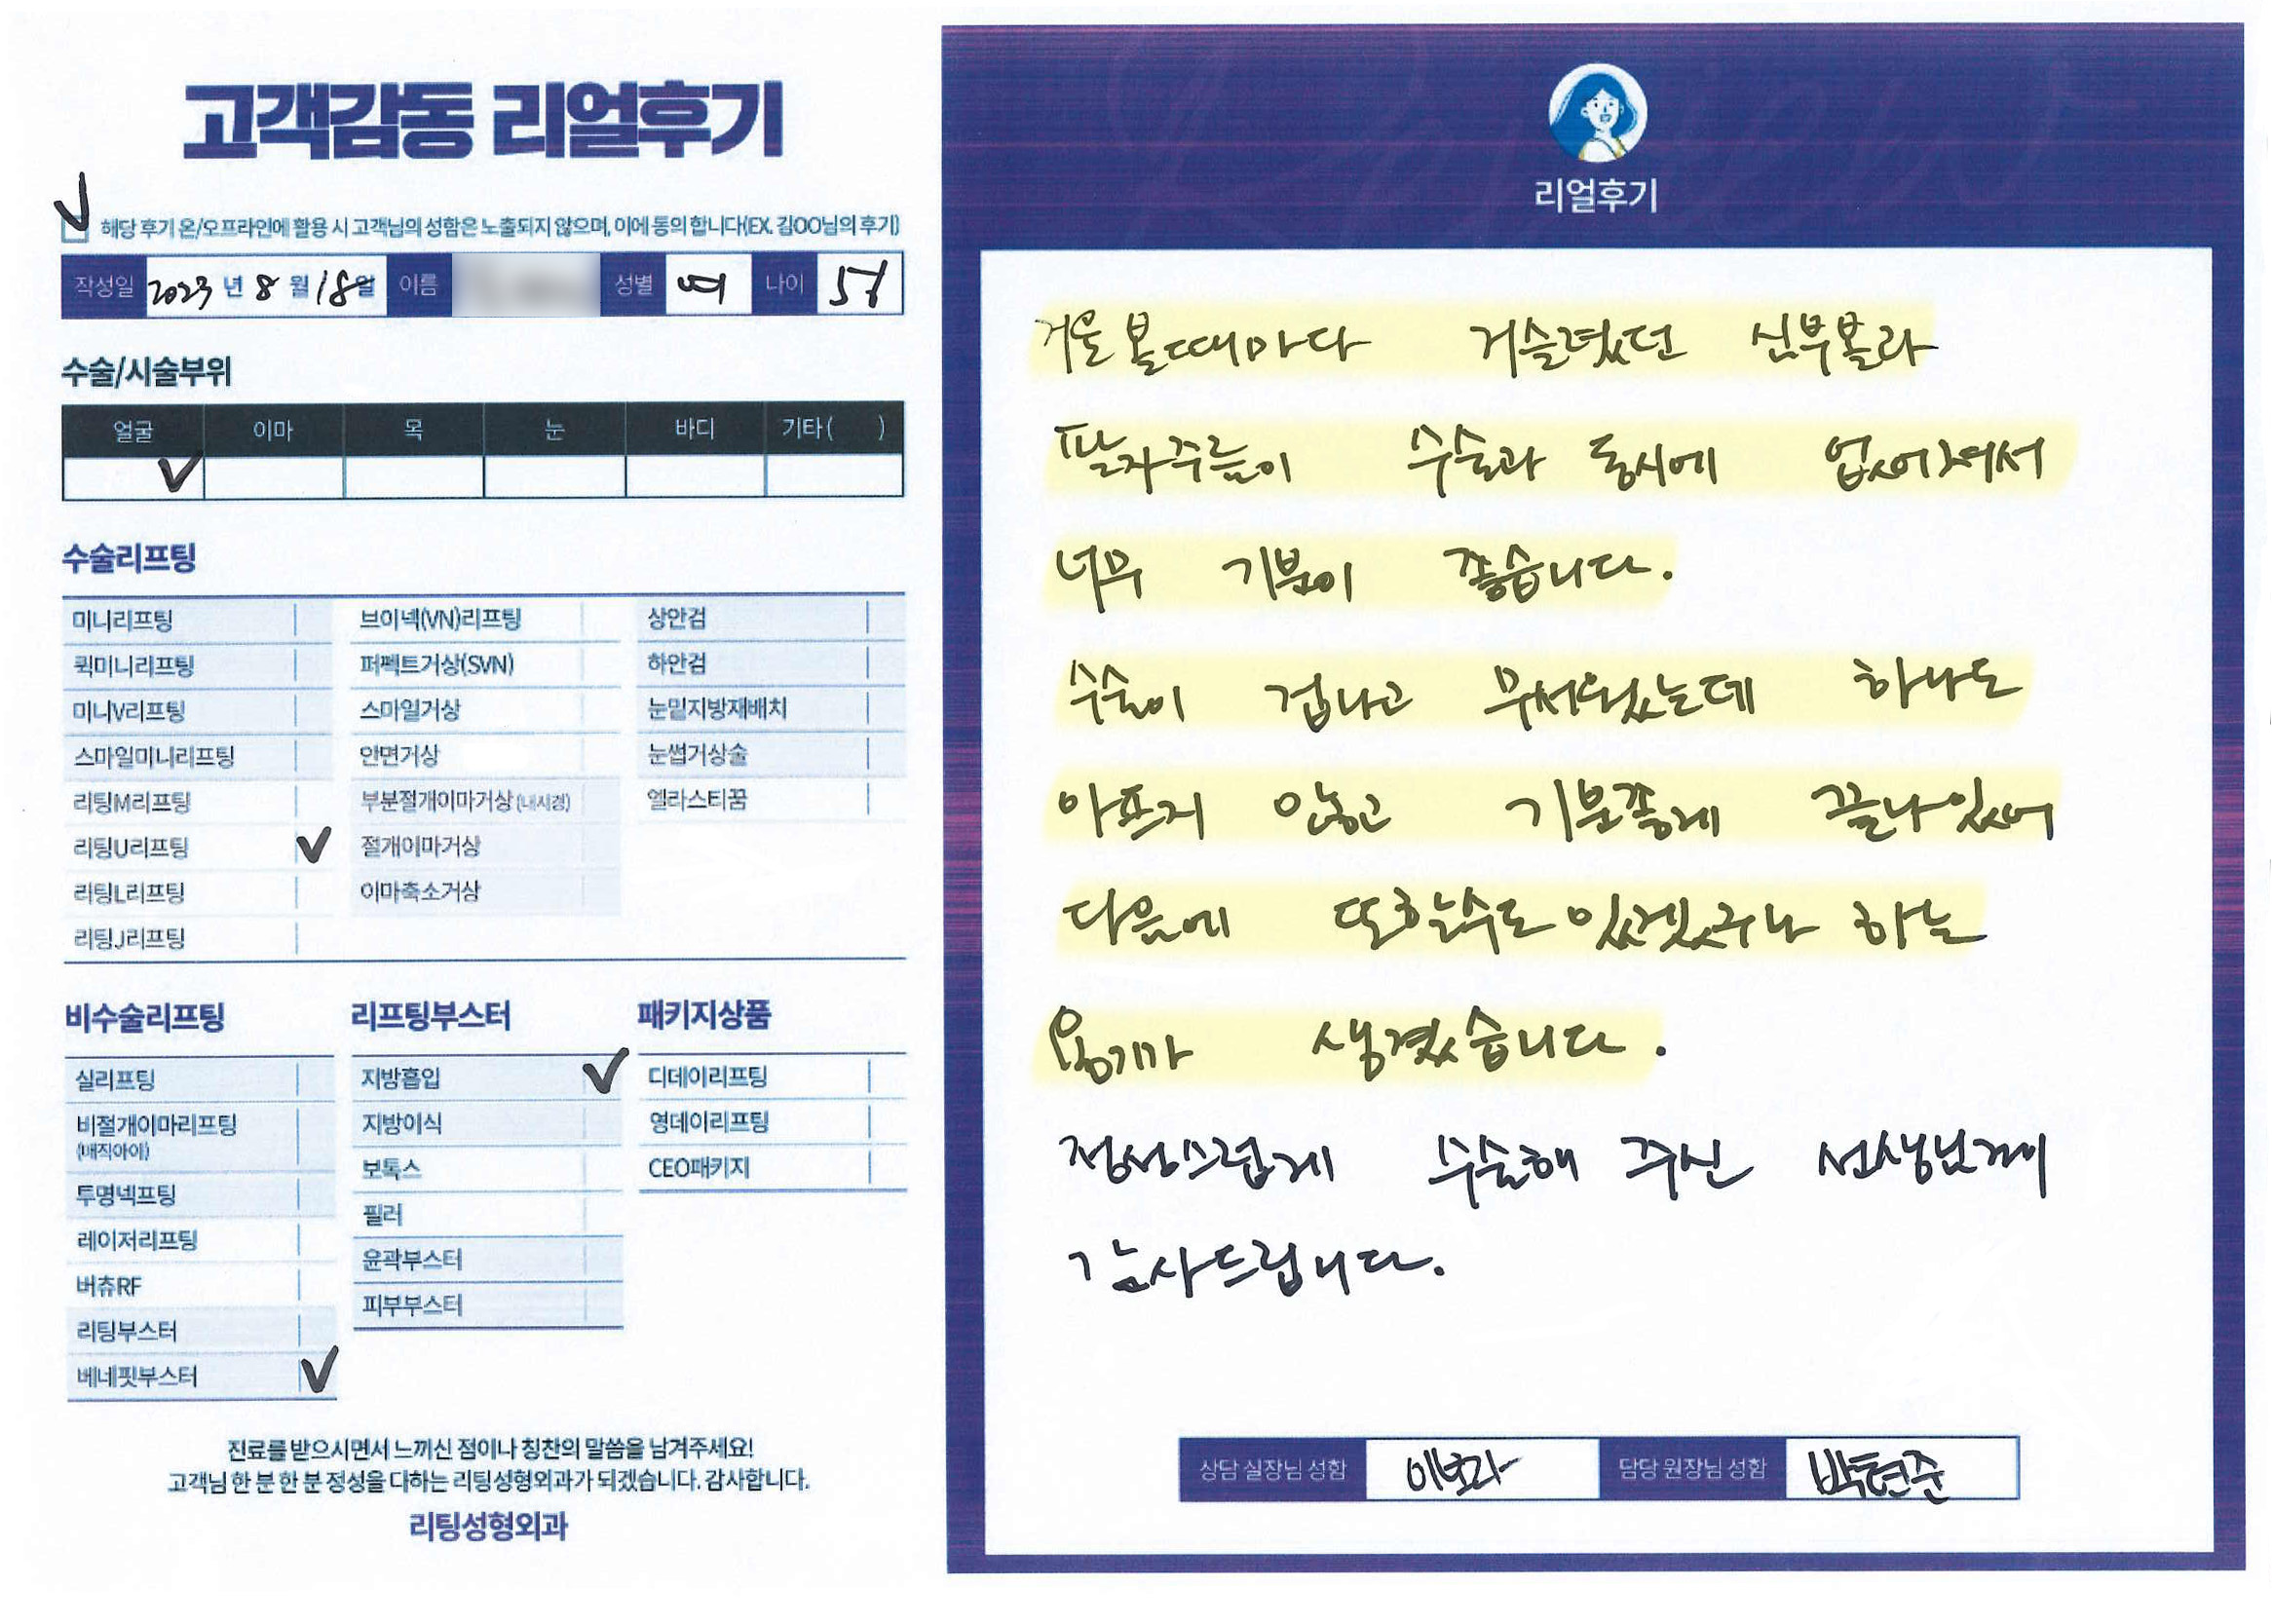 고객감동 리얼후기
해당 후기 온/오프라인에 활용 시 고객님의 성함은 노출되지 않으며, 이에 동의 합니다(EX. 김OO님의 후기)
작성일 2023 년 8 월 18 일 이름 성별 여 나이
수술/시술부위
얼굴 이마 목 눈 바디 기타( )
수술리프팅
미니리프팅 브이넥(VN)리프팅 상안검
퀵미니리프팅 퍼펙트거상(SVN) 하안검
미니V리프팅 스마일거상 눈밑지방재배치
스마일미니리프팅 안면거상 눈썹거상술
리팅M리프팅 부분절개이마거상(내시경) 엘라스티꿈
리팅U리프팅 절개이마거상
리팅L리프팅 이마축소거상
리팅J리프팅
비수술리프팅 리프팅부스터 패키지상품
실리프팅 지방흡입 디데이리프팅
비절개이마리프팅 지방이식 영데이리프팅
(매직아이) 보톡스 CEO패키지
투명넥프팅 필러
레이저리프팅 윤곽부스터
버츄RF 피부부스터
리팅부스터
베네핏부스터
진료를 받으시면서 느끼신 점이나 칭찬의 말씀을 남겨주세요!
고객님 한 분 한 분 정성을 다하는 리팅성형외과가 되겠습니다. 감사합니다.
리팅성형외과
리얼후기
거울 볼때마다 거슬렸던 심부볼과
팔자주름이 수술과 동시에 없어져서
너무 기분이 좋습니다.
수술이 겁나고 무서웠는데 하나도
아프지 않고 기분좋게 끝나있어
다음에 또할수도 있겠구나 하는
용기가 생겼습니다.
정성스럽게 수술해 주신 선생님께
감사드립니다.
상담 실장님 성함 담당 원장님 성함 박현준